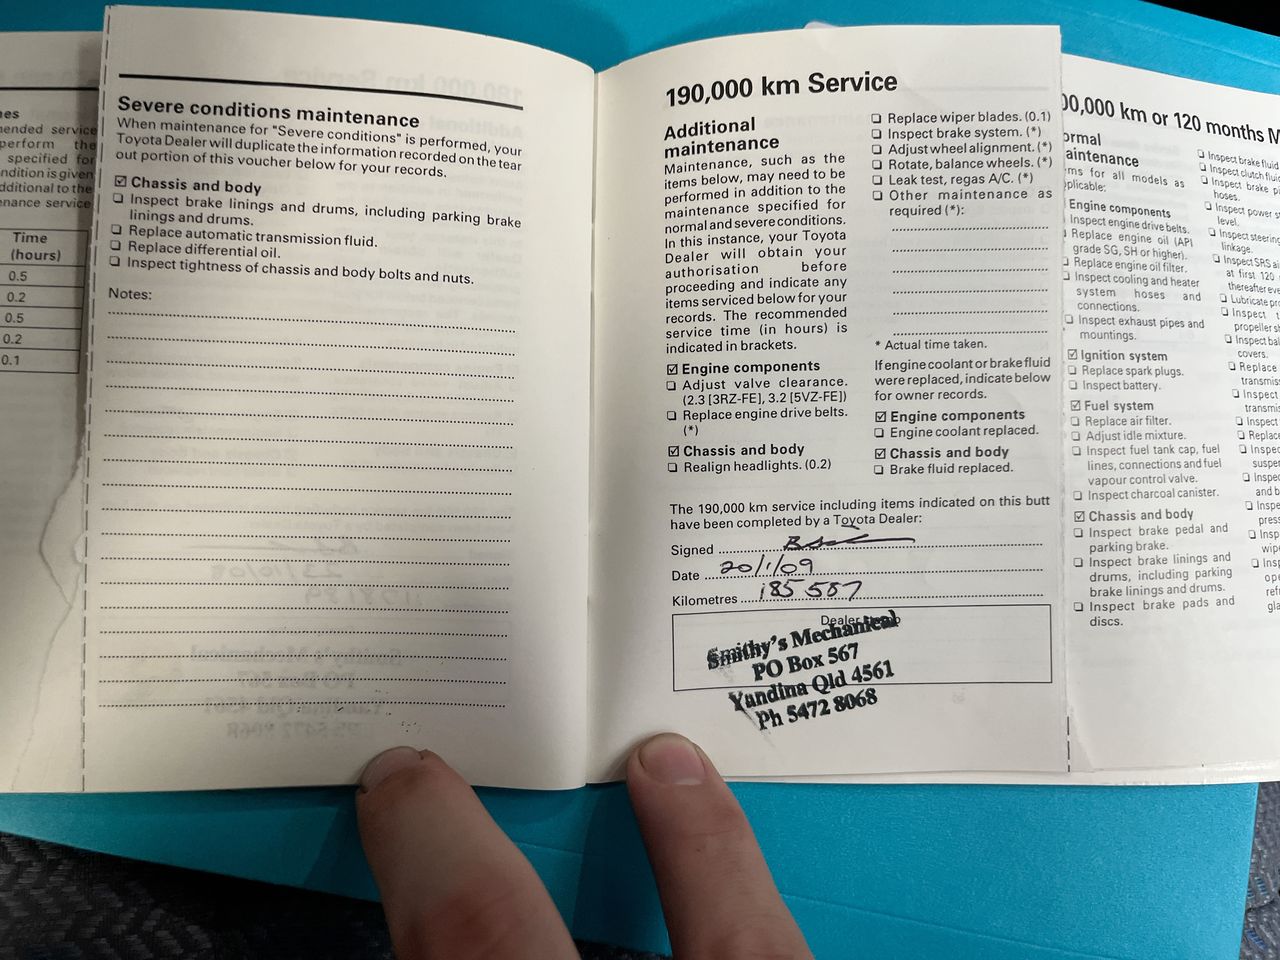 nes
nended service
perform the
specified for
ndition is given
dditional to the
enance service
Time
(hours)
0.5
0.2
0.5
0.2
0.1
Severe conditions maintenance
When maintenance for "Severe conditions" is performed, your
Toyota Dealer will duplicate the information recorded on the tear
out portion of this voucher below for your records.
☑ Chassis and body
❏ Inspect brake linings and drums, including parking brake
linings and drums.
❏ Replace automatic transmission fluid.
❏ Replace differential oil.
❏ Inspect tightness of chassis and body bolts and nuts.
Notes:
190,000 km Service
Additional
maintenance
Maintenance, such as the
items below, may need to be
performed in addition to the
maintenance specified for
normal and severe conditions.
In this instance, your Toyota
Dealer will obtain your
authorisation before
proceeding and indicate any
items serviced below for your
records. The recommended
service time (in hours) is
indicated in brackets.
☑ Engine components
❏ Adjust valve clearance.
(2.3 [3RZ-FE], 3.2 [5VZ-FE])
❏ Replace engine drive belts.
(*)
☑ Chassis and body
❏ Realign headlights. (0.2)
❏ Replace wiper blades. (0.1)
❏ Inspect brake system. (*)
❏ Adjust wheel alignment. (*)
❏ Rotate, balance wheels. (*)
❏ Leak test, regas A/C. (*)
❏ Other maintenance as
required (*):
* Actual time taken.
If engine coolant or brake fluid
were replaced, indicate below
for owner records.
☑ Engine components
❏ Engine coolant replaced.
☑ Chassis and body
❏ Brake fluid replaced.
The 190,000 km service including items indicated on this butt
have been completed by a Toyota Dealer:
Signed
Date 20/1/09
Kilometres 185 587
Dealer
Smithy's Mechanical
PO Box 567
Yandina Qld 4561
Ph 5472 8068
00,000 km or 120 months M
ormal
aintenance
ms for all models as
plicable:
Engine components
Inspect engine drive belts.
Replace engine oil (API
grade SG, SH or higher).
❏ Replace engine oil filter.
❏ Inspect cooling and heater
system hoses and
connections.
❏ Inspect exhaust pipes and
mountings.
☑ Ignition system
❏ Replace spark plugs.
❏ Inspect battery.
☑ Fuel system
❏ Replace air filter.
❏ Adjust idle mixture.
❏ Inspect fuel tank cap, fuel
lines, connections and fuel
vapour control valve.
❏ Inspect charcoal canister.
☑ Chassis and body
❏ Inspect brake pedal and
parking brake.
❏ Inspect brake linings and
drums, including parking
brake linings and drums.
❏ Inspect brake pads and
discs.
❏ Inspect brake fluid
❏ Inspect clutch fluid
❏ Inspect brake pi
hoses.
❏ Inspect power st
level.
❏ Inspect steering
linkage.
❏ Inspect SRS ai
at first 120
thereafter eve
❏ Lubricate pro
❏ Inspect t
propeller sh
❏ Inspect bal
covers.
❏ Replace
transmis
❏ Inspect
transmi
❏ Inspect
❏ Replac
❏ Inspec
suspe
❏ Inspe
and b
❏ Inspe
press
❏ Insp
wipe
❏ Ins
ope
refr
gla